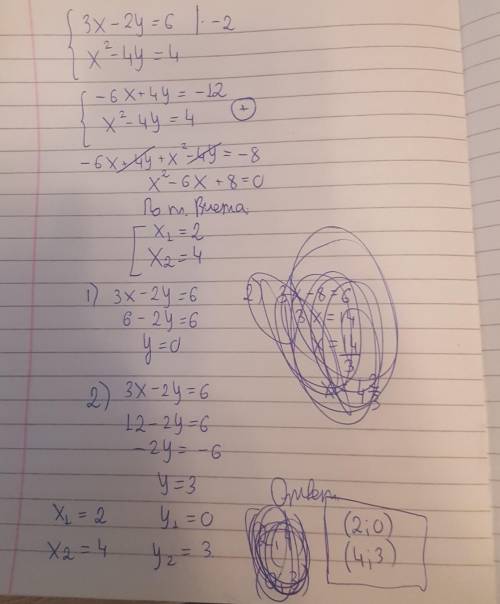 3x-2y=6 |· -2
x²-4y=4
-6x+4y=-12 (+)
x²-4y=4
-6x+4y+x²-4y=-8
x²-6x+8=0
По т. Виета
x₁=2
x₂=4
1) 3x-2y=6
6-2y=6
y=0
2) 3x-8=6
3x=14
x=14/3
2) 3x-2y=6
12-2y=6
-2y=-6
y=3
x₁=2 y₁=0
x₂=4 y₂=3
Ответ:
(2;0)
(4;3)